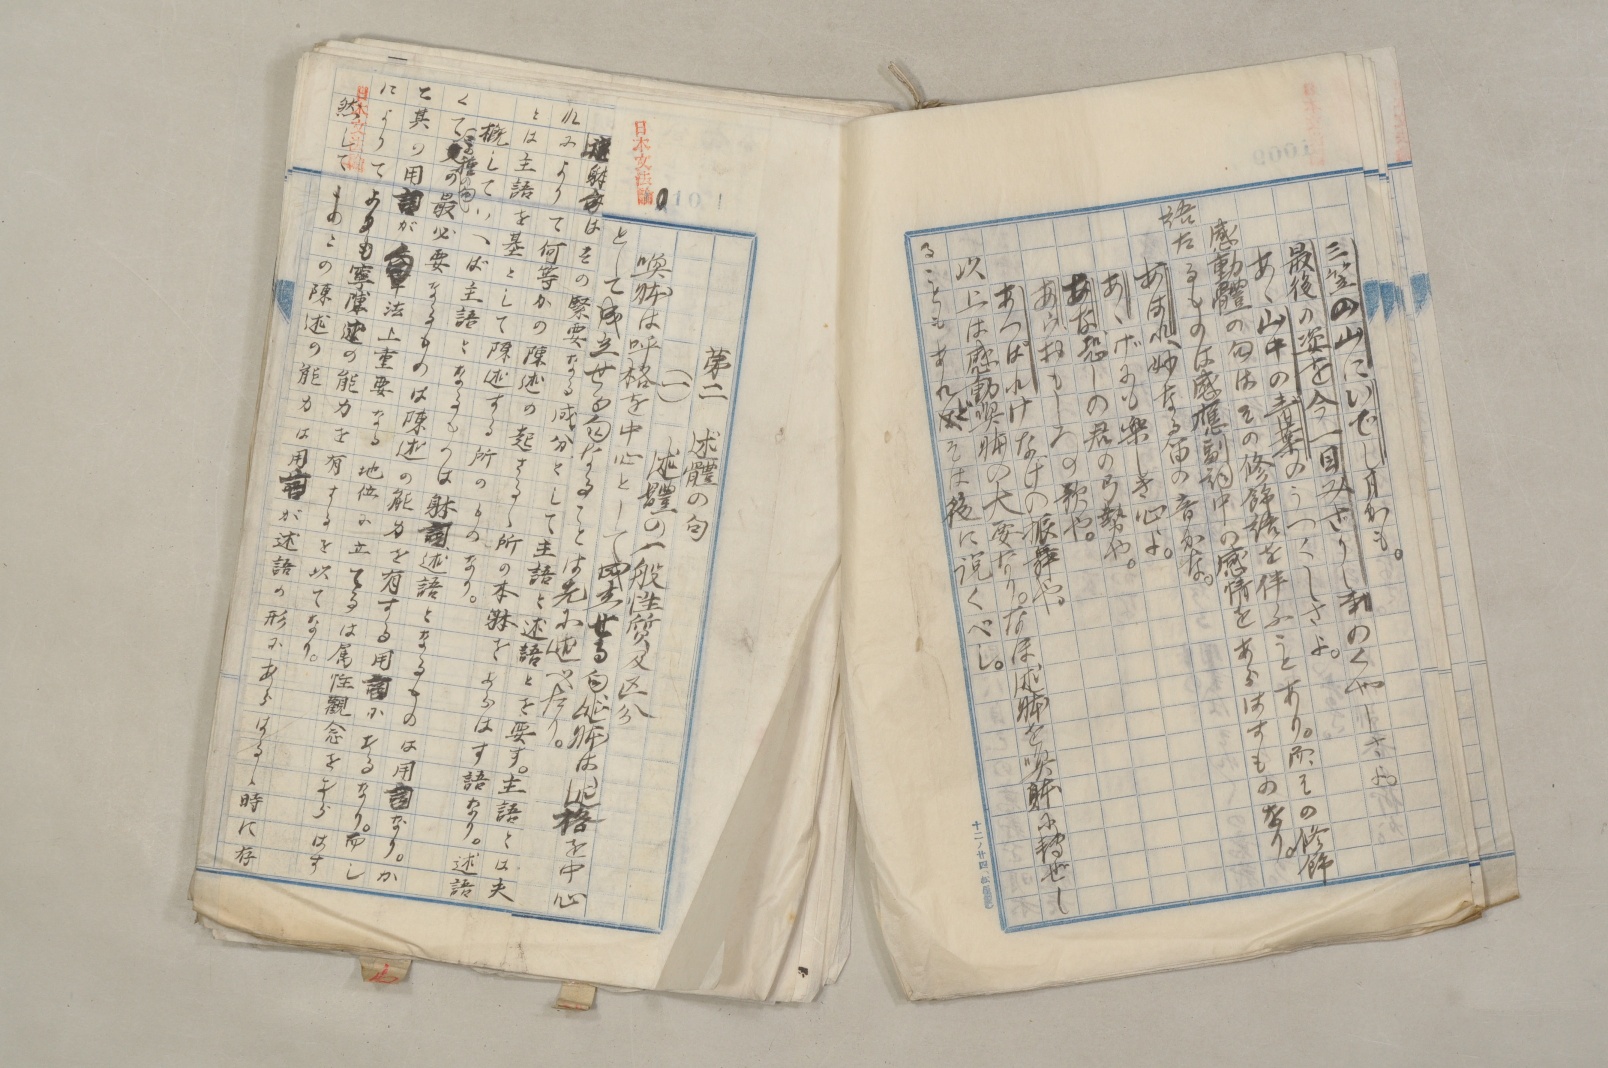 三笠の山にいでし月かも。
最後の姿を今一目みざりし事のくやしさよ。
あゝ山中の青葉のうつくしさよ。
感動體の句はその修飾語を伴ふことあり。而その修飾
語たるものは感應副詞中の感情をあらはすものなり。
あはれ、妙なる笛の音かな。
あゝボオも楽しき心よ。
あな恐しの君の御勢や。
あらおもしろの歌や。
あっぱれけなげの振舞や。
以上は感動喚体の大要なり。なほ述体を喚体に転ぜし
ることもあれどそは後に説くべし。
日本文法論
第二 述體の句
(一) 述體の一般性質及区分
喚体は呼格を中心として成立せる句、述体は述格を中心
として成立せる句なることは先に述べたり。
述体はその緊要なる成分として主語と述語とを要す。主語とは夫
れによりて何等かの陳述の起さるゝ所の本体をあらはす語なり。述語
とは主語を基として陳述する所のものなり。
概していへば主語となるものは体言述語となるものは用言なり。か
くて述体の句の最必要なるものは陳述の能力を有する用言にあるなり。而し
て其の用言が句法上重要なる地位に立てるは属性観念をあらはす
によりてよりも寧陳述の能力を有するを以てなり。
然してまたこの陳述の能力は用言が述語の形にあらはるゝ時に存